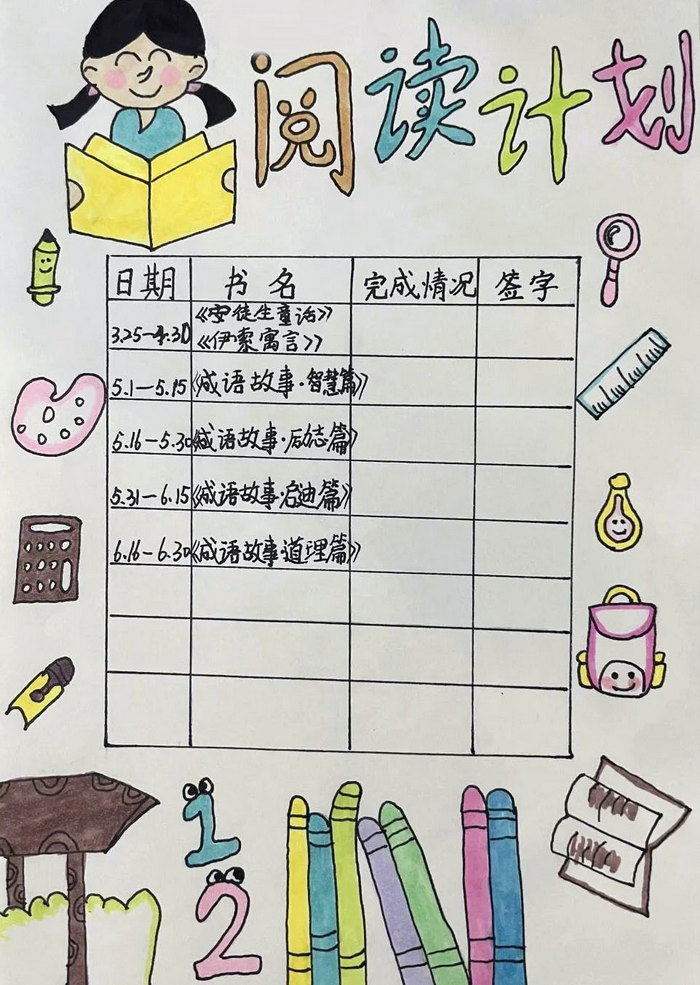 阅读计划
日期 书名 完成情况 签字
3.25-4.30 《安徒生童话》
《伊索寓言》
5.1-5.15 《成语故事·智慧篇》
5.16-5.30 《成语故事·励志篇》
5.31-6.15 《成语故事·启迪篇》
6.16-6.30 《成语故事·道理篇》
1
2